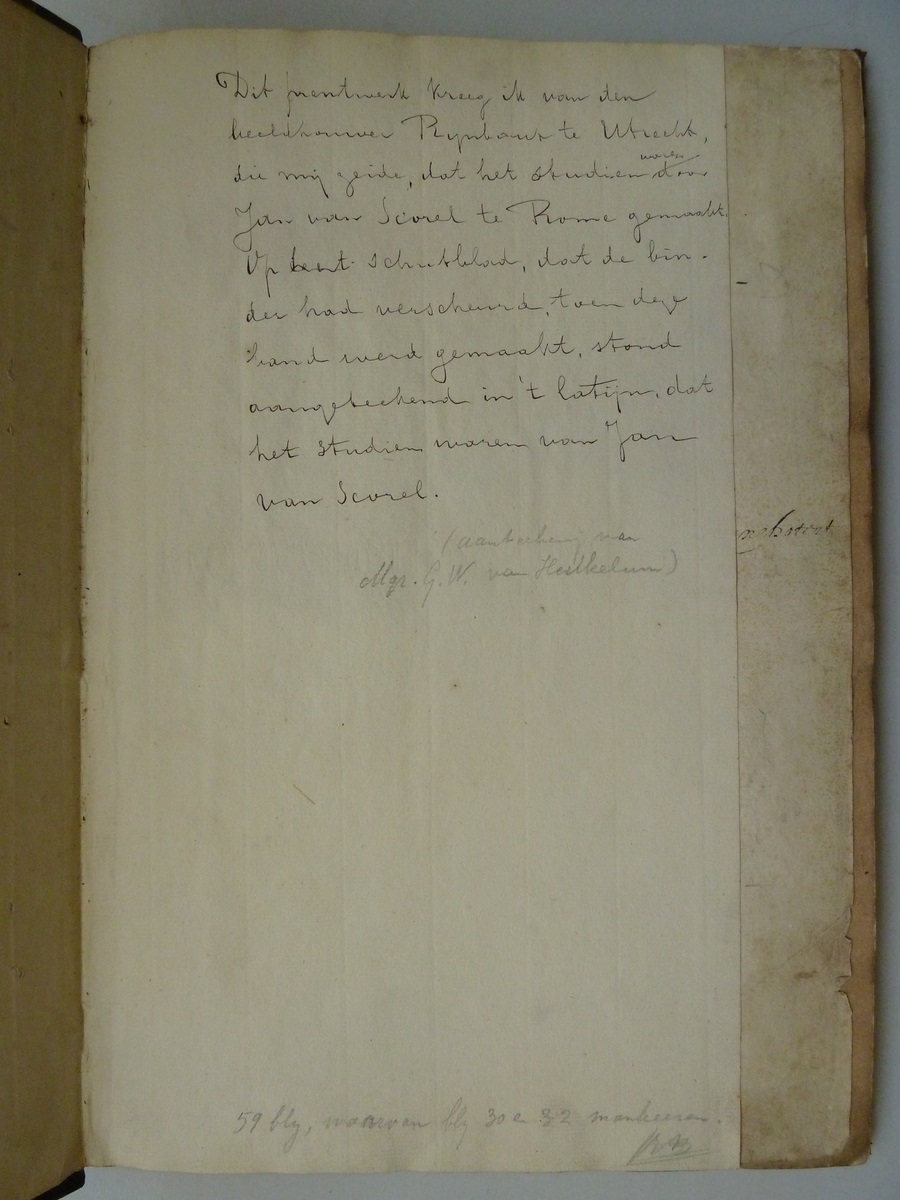 Dit prentwerk kreeg ik van den
beeldhouwer Rynbout te Utrecht,
die mij zeide, dat het studien waren door
Jan van Scorel te Rome gemaakt.
Op schutblad, dat de bin-
der had verscheurd, toen deze
band werd gemaakt, stond
aangeteekend in 't latijn, dat
het studien waren van Jan
van Scorel.
(aanteekening van
Mgr. G. W. van Heukelum)
59 blz, waarvan blz 30 en 32 mankeeren.